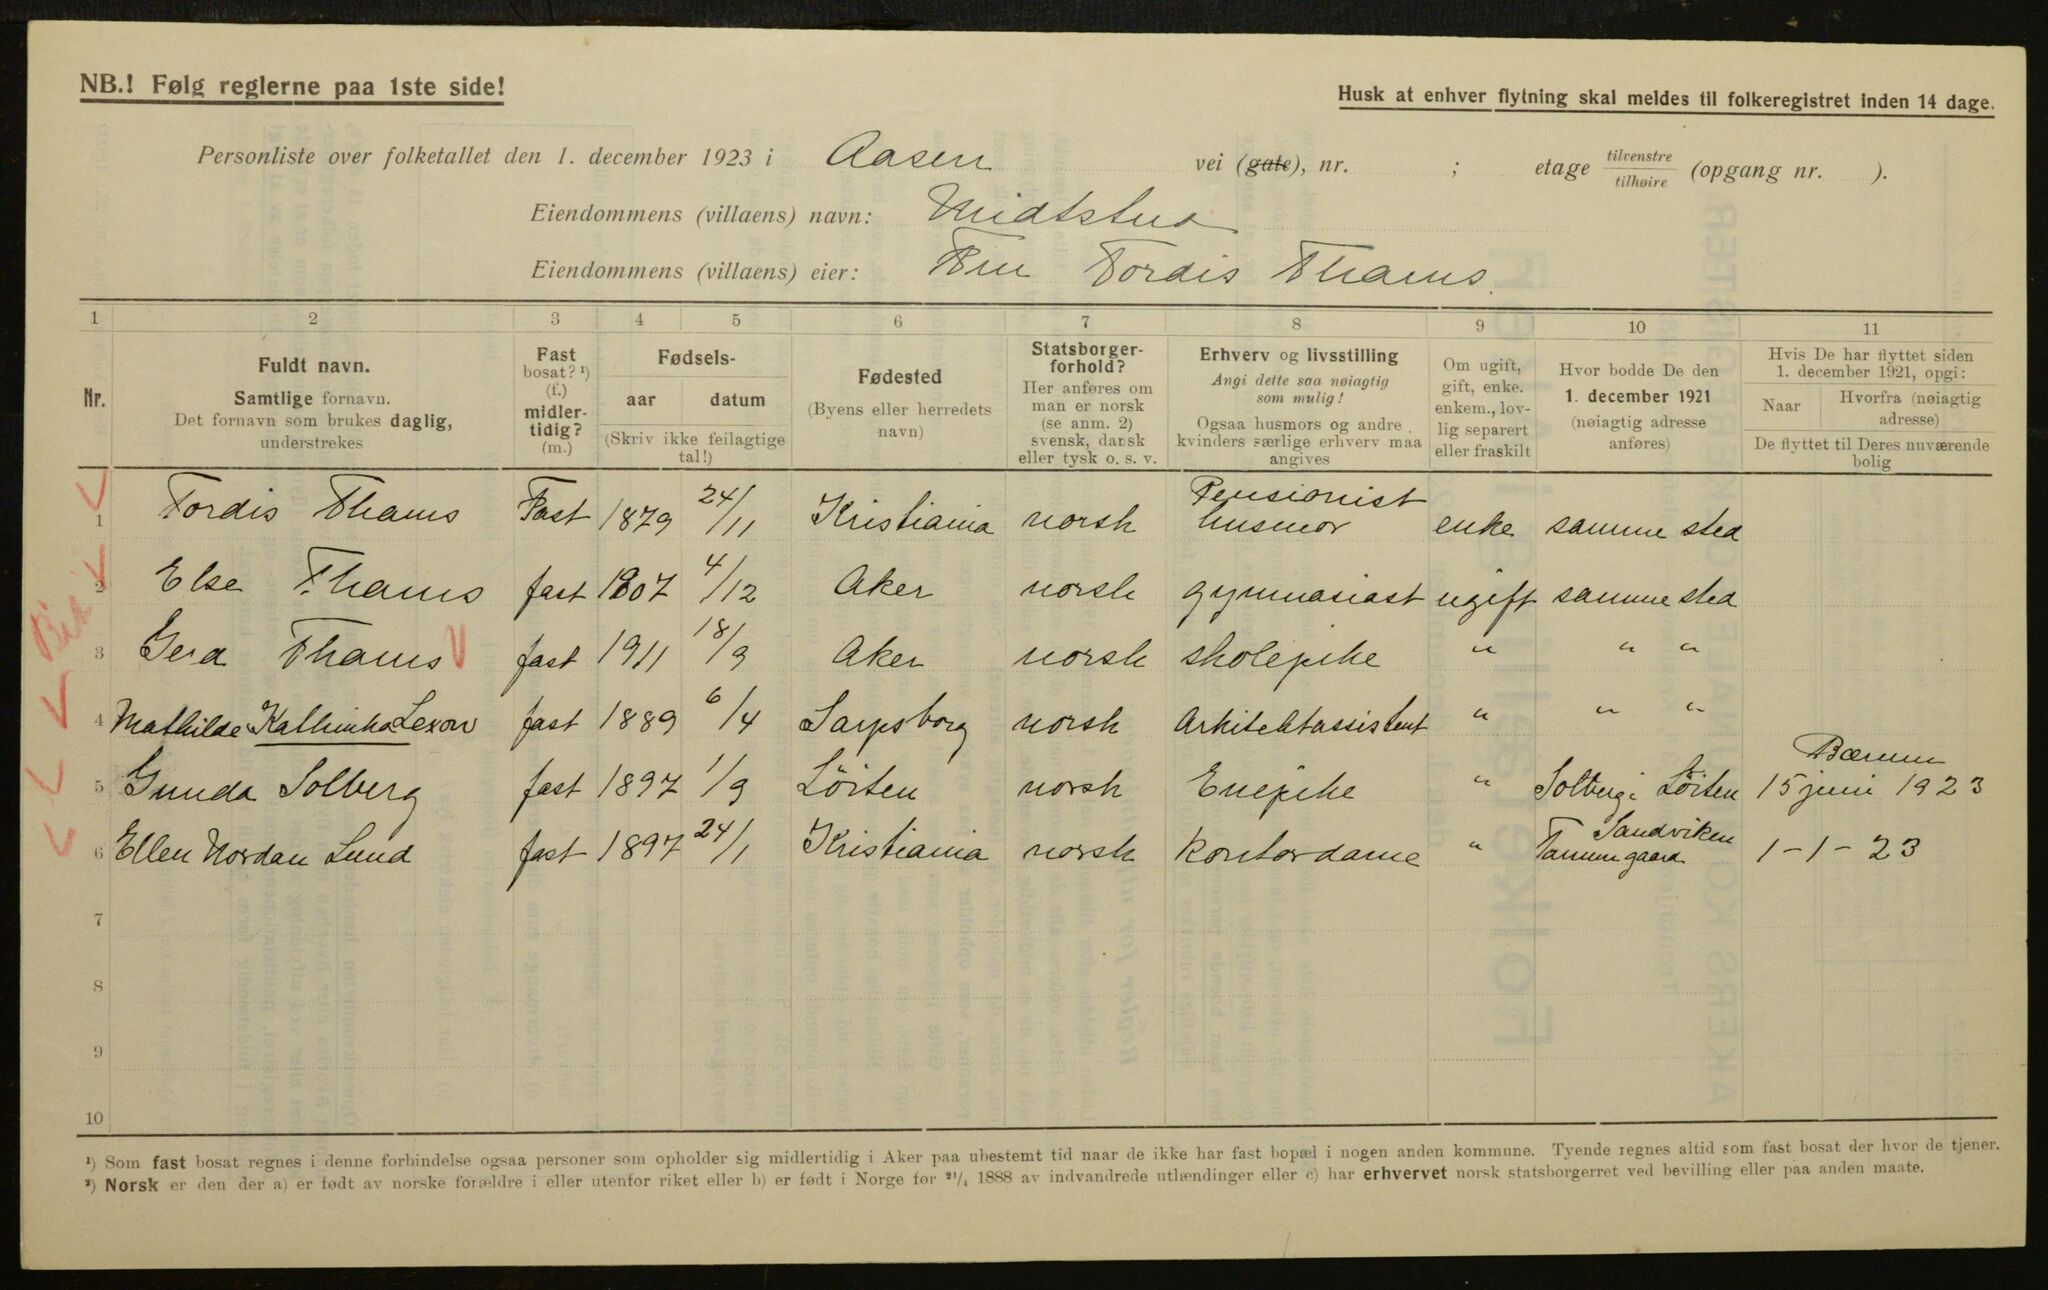 NB.! Følg reglerne paa 1ste side!
Husk at enhver flytning skal meldes til folkeregistret inden 14 dage.
Personliste over folketallet den 1. december 1923 i Aasen vei (gate), nr. ; etage tilvenstre / tilhøire (opgang nr. ).
Eiendommens (villaens) navn: Midtstua
Eiendommens (villaens) eier: Fru Tordis Thams.
1 2 3 4 5 6 7 8 9 10 11
Nr.
Fuldt navn.
Samtlige fornavn.
Det fornavn som brukes daglig,
understrekes
Fast
bosat? ¹)
(f.)
midler-
tidig?
(m.)
Fødsels-
aar datum
(Skriv ikke feilagtige
tal!)
Fødested
(Byens eller herredets
navn)
Statsborger-
forhold?
Her anføres om
man er norsk
(se anm. 2)
svensk, dansk
eller tysk o. s. v.
Erhverv og livsstilling
Angi dette saa nøiagtig
som mulig!
Ogsaa husmors og andre
kvinders særlige erhverv maa
angives
Om ugift,
gift, enke.
enkem., lov-
lig separert
eller fraskilt
Hvor bodde De den
1. december 1921
(nøiagtig adresse
anføres)
Hvis De har flyttet siden
1. december 1921, opgi:
Naar Hvorfra (nøiagtig
adresse)
De flyttet til Deres nuværende
bolig
1 Tordis Thams Fast 1879 24/11 Kristiania norsk Pensionist husmor enke samme sted
2 Else Thams fast 1907 4/12 Aker norsk gymnasiast ugift samme sted
3 Gerd Thams fast 1911 18/9 Aker norsk skolepike " " "
4 Mathilde Kathinka Lexow fast 1889 6/4 Sarpsborg norsk Arkitektassistent " " "
5 Gunda Solberg fast 1897 1/9 Löiten norsk Enepike " Solberg i Löiten 15 juni 1923 Bærum
6 Ellen Nordan Lund fast 1897 24/1 Kristiania norsk Kontordame " Sandviken Tanumgaard 1-1-23
7
8
9
10
¹) Som fast bosat regnes i denne forbindelse ogsaa personer som opholder sig midlertidig i Aker paa ubestemt tid naar de ikke har fast bopæl i nogen anden kommune. Tyende regnes altid som fast bosat der hvor de tjener.
²) Norsk er den der a) er født av norske forældre i eller utenfor riket eller b) er født i Norge før 21/4 1888 av indvandrede utlændinger eller c) har erhvervet norsk statsborgerret ved bevilling eller paa anden maate.